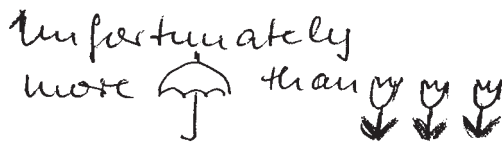 Unfortunately
more than